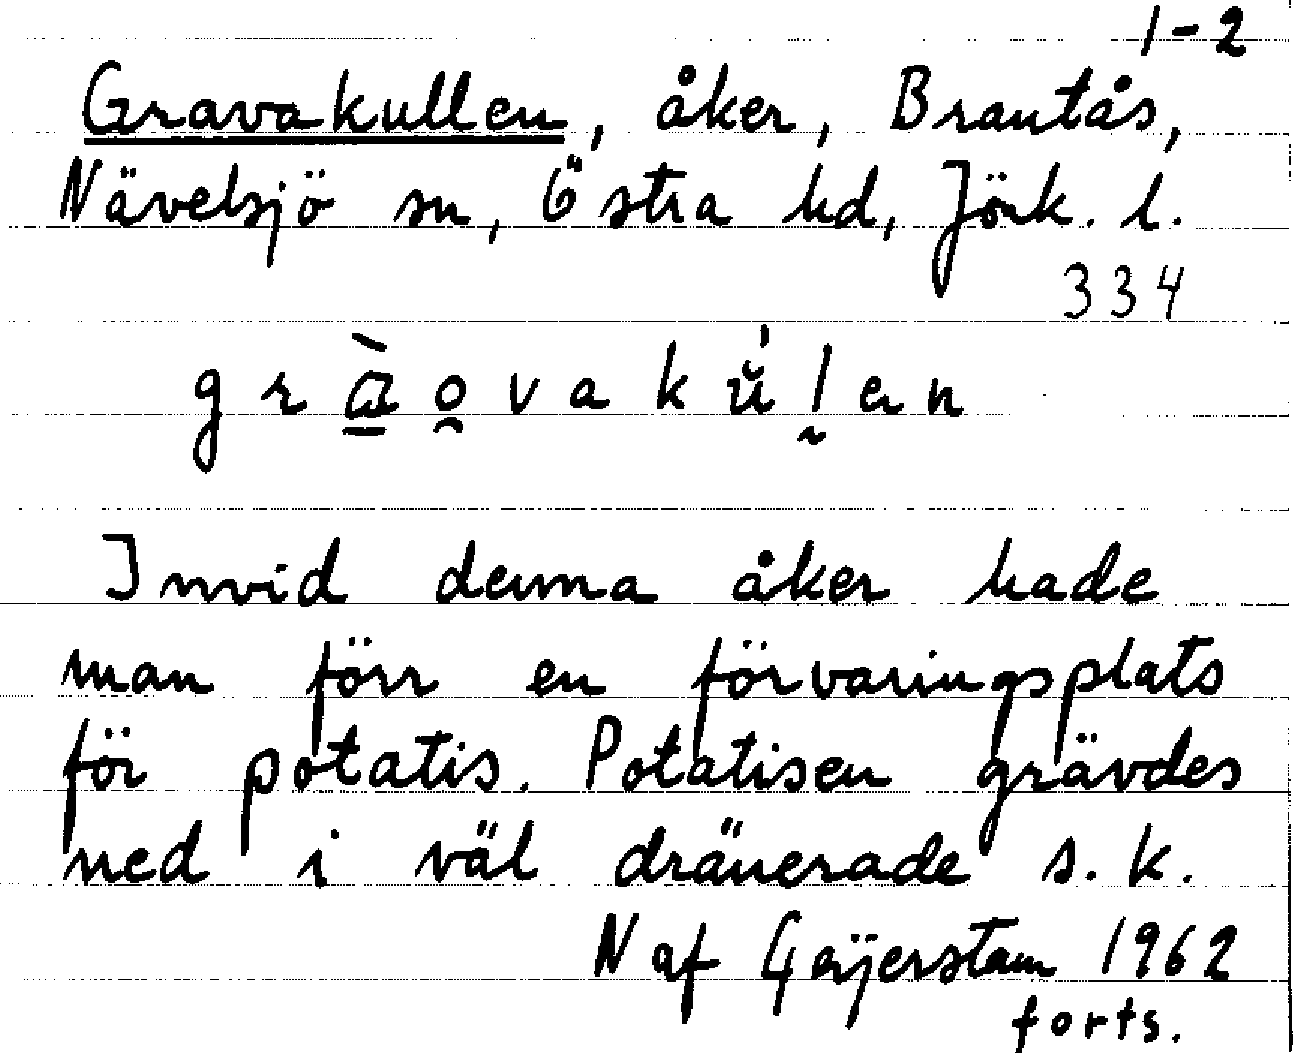 1-2
Gravakullen, åker, Brantås,
Nävelsjö sn, Östra hd, Jönk. l.
334
gràa̲o̯vakŭ́l̰en
Invid denna åker hade
man förr en förvaringsplats
för potatis. Potatisen grävdes
ned i väl dränerade s.k.
N af Geijerstam 1962
forts.